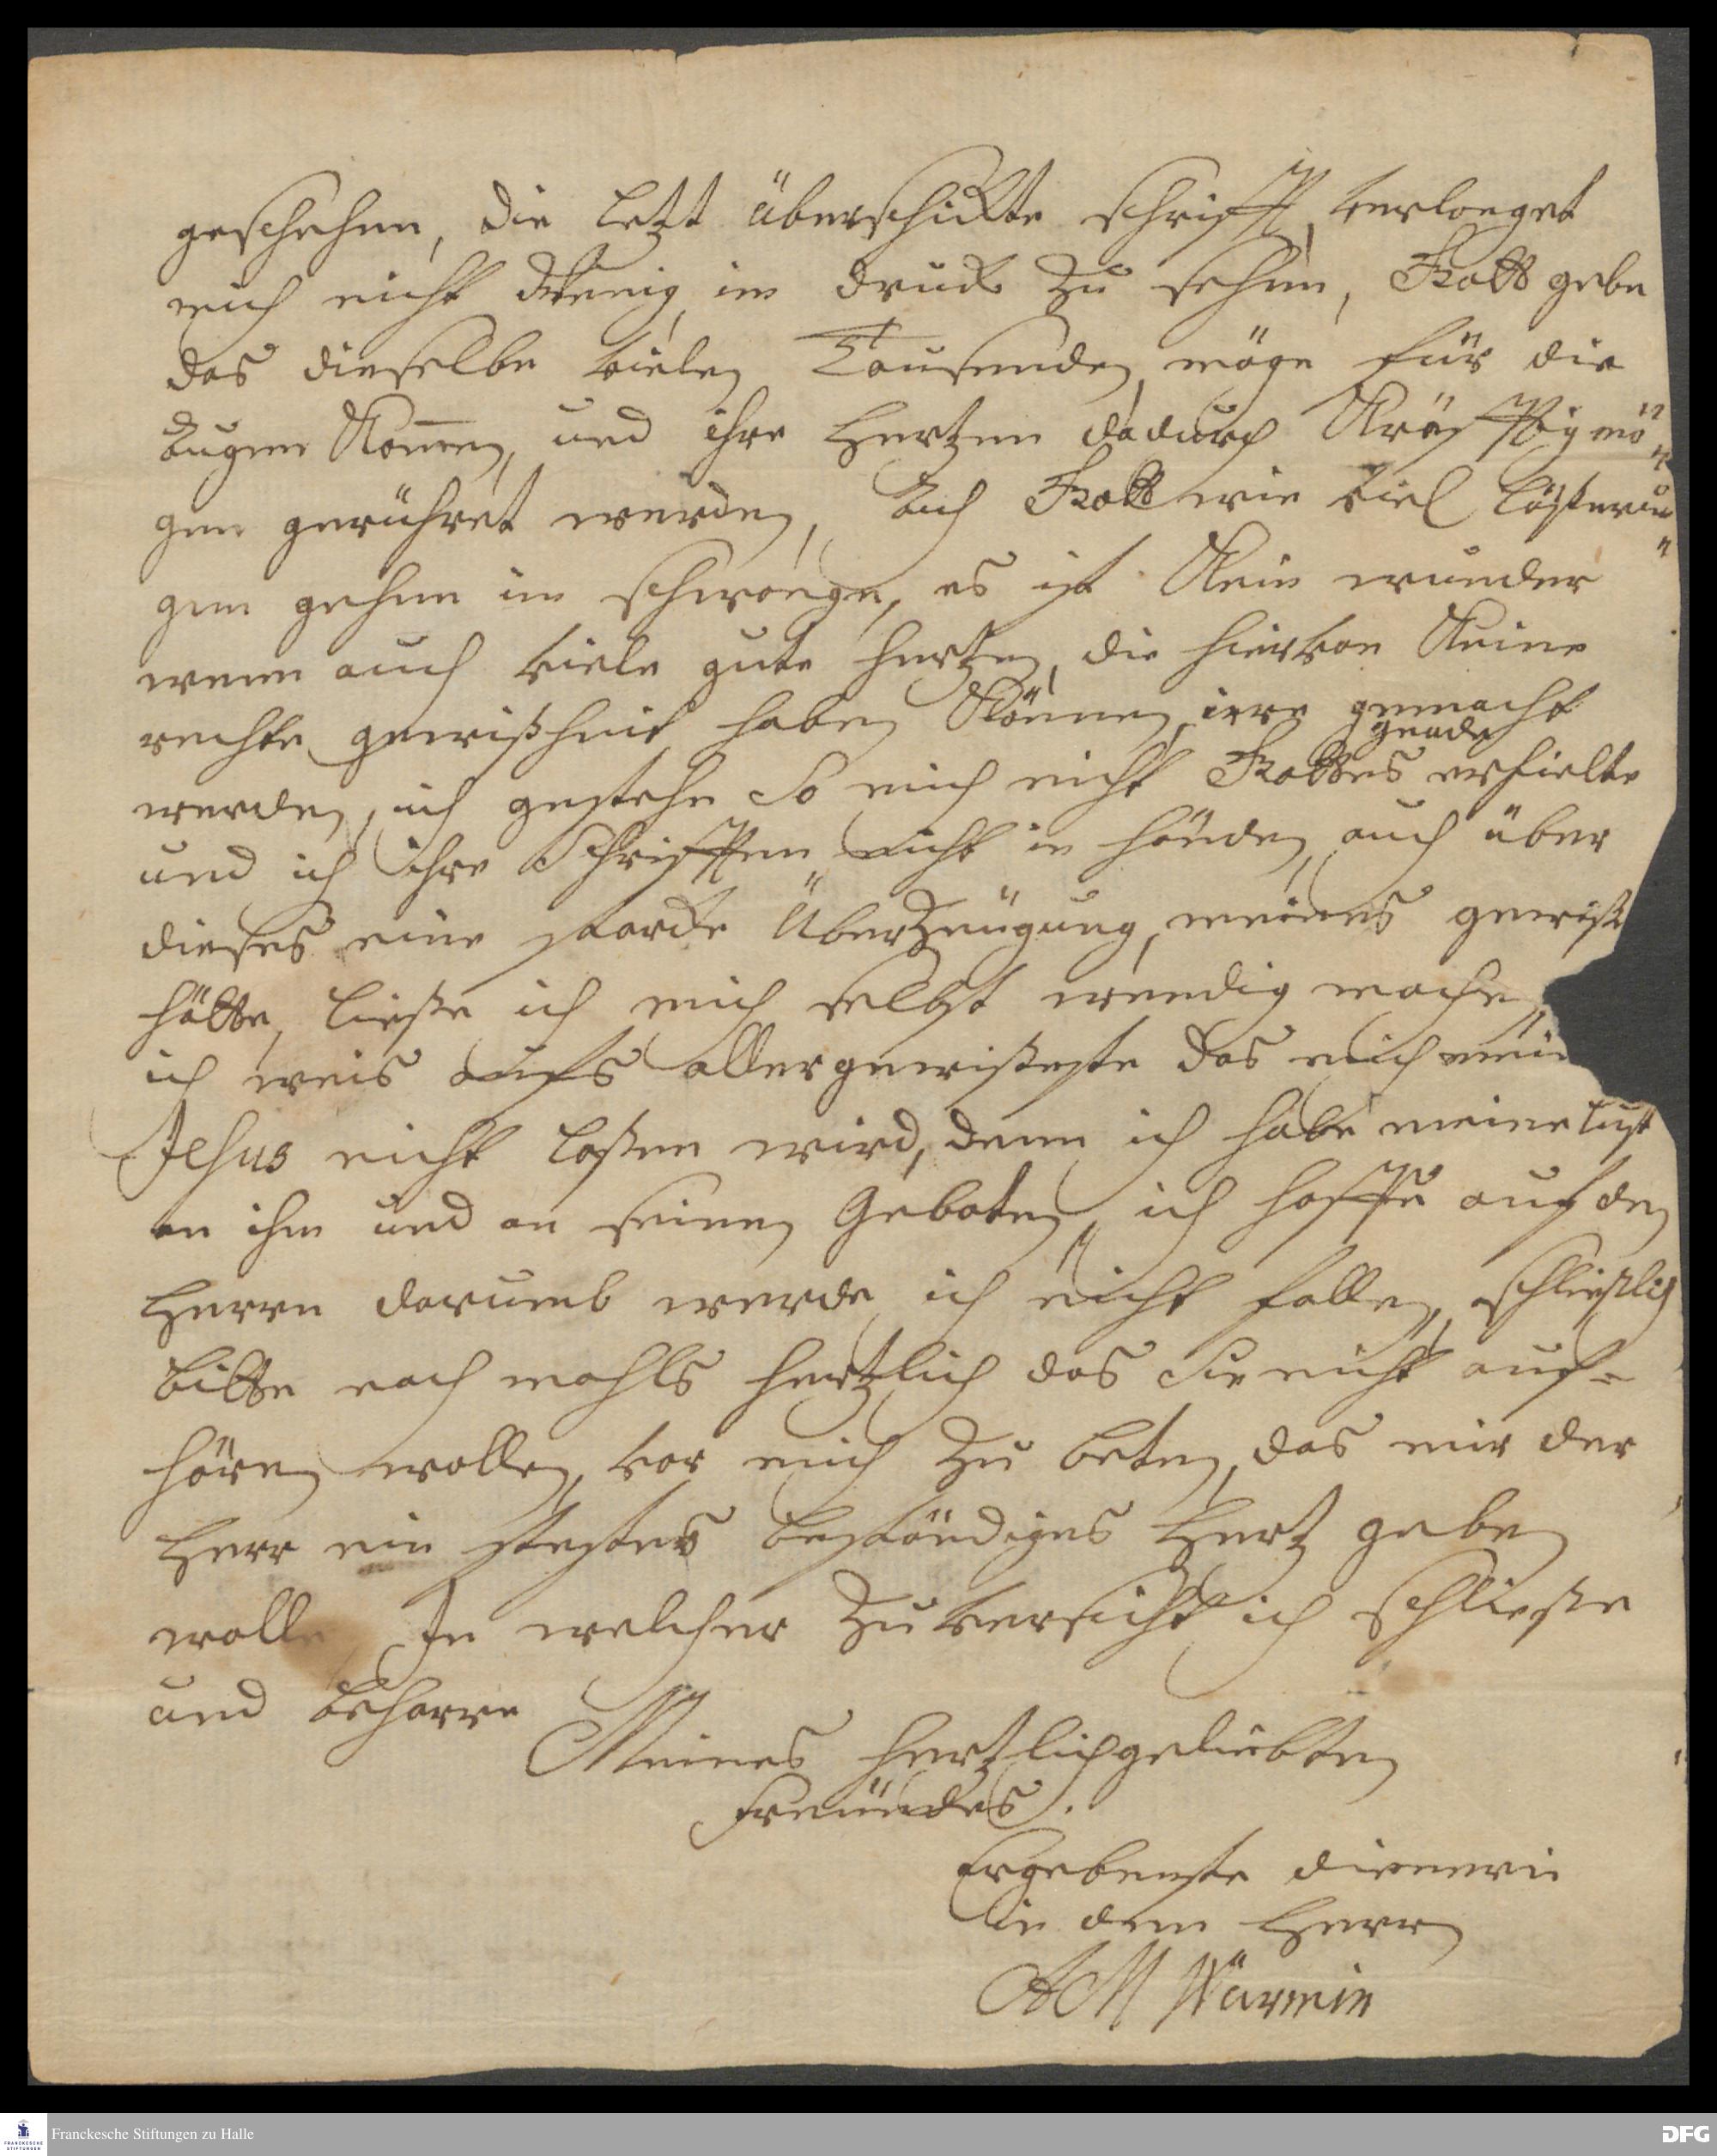 geschehen, die letzt überschickte schrifft, verlanget
mich nicht Wenig, im druck zu sehen, Gott gebe
das dieselbe vielen Tausenden möge für die
Augen Komen, und ihre Hertzen dadurch Kräfftig mö
gen gerühret werden, Ach Gott wie viel lästerun
gen gehen im schwange, es ist Kein wunder
wenn auch viele gute hertzen, die hiervon Keine
rechte gewißheit haben Können, irre gemacht
werden, ich gestehe So mich nicht Gottes gnade erhielte
und ich ihre Schrifften nicht in händen, auch über
dieses eine starcke Überzeugung, meines gewiße
hätte, ließe ich mich selbst wendig machen,
ich weis aufs allergewißeste das mich mein
Jesus nicht laßen wird, denn ich habe meine lust
an ihm und an seinen Geboten, ich hoffe auf den
Herrn darumb werde ich nicht fallen, schließlich
bitte noch mahls hertzlich das Sie nicht auf-
hören wollen, vor mich zu beten, das mir der
Herr ein festes beständiges Hertz geben
wolle In welcher Zuversicht ich schließe
und beharre
Meines hertzlichgeliebten
Freundes.
Ergebenste dienerin
in dem Herrn
AM Würmin
Franckesche Stiftungen zu Halle
DFG